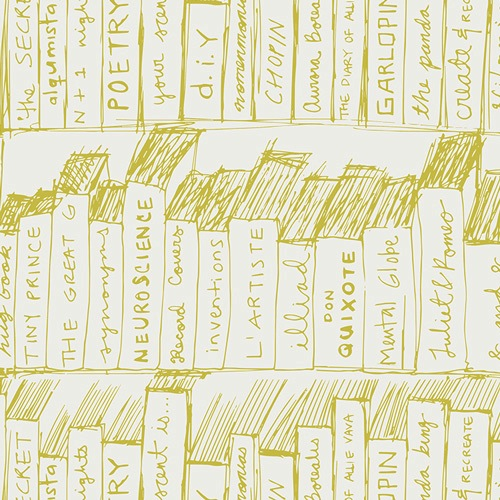 the SECRE
alqumista
N + 1 nig
POETRY
your scan
d.i.Y
CHOPIN
Aurora Borea
THE DIARY OF ALLI
GARLOPIN
the panda
create & rec
hug book
TINY PRINCE
THE GREAT G
synonyms
NEUROSCIENCE
Record Covers
inventions
L'ARTISTE
illiad
DON
QUIXOTE
Mental Globe
Juliet & Romeo
ECRET
ista
ights
RY
scant is...
i.Y
PIN
Borealis
ALLIE VAVA
OPIN
nda king
RECREATE